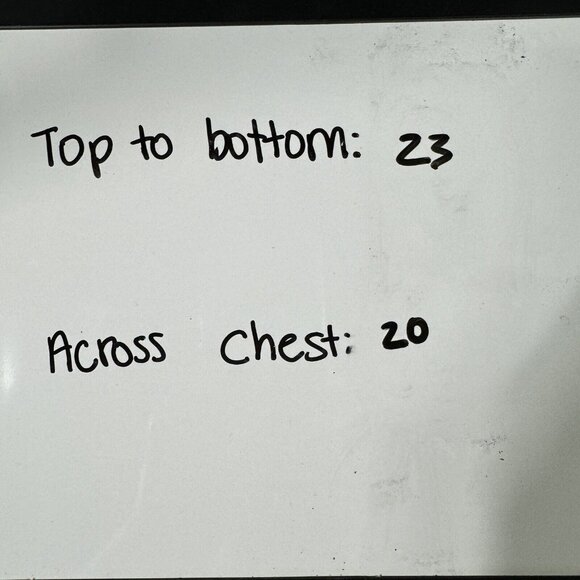 Top to bottom: 23
Across Chest: 20